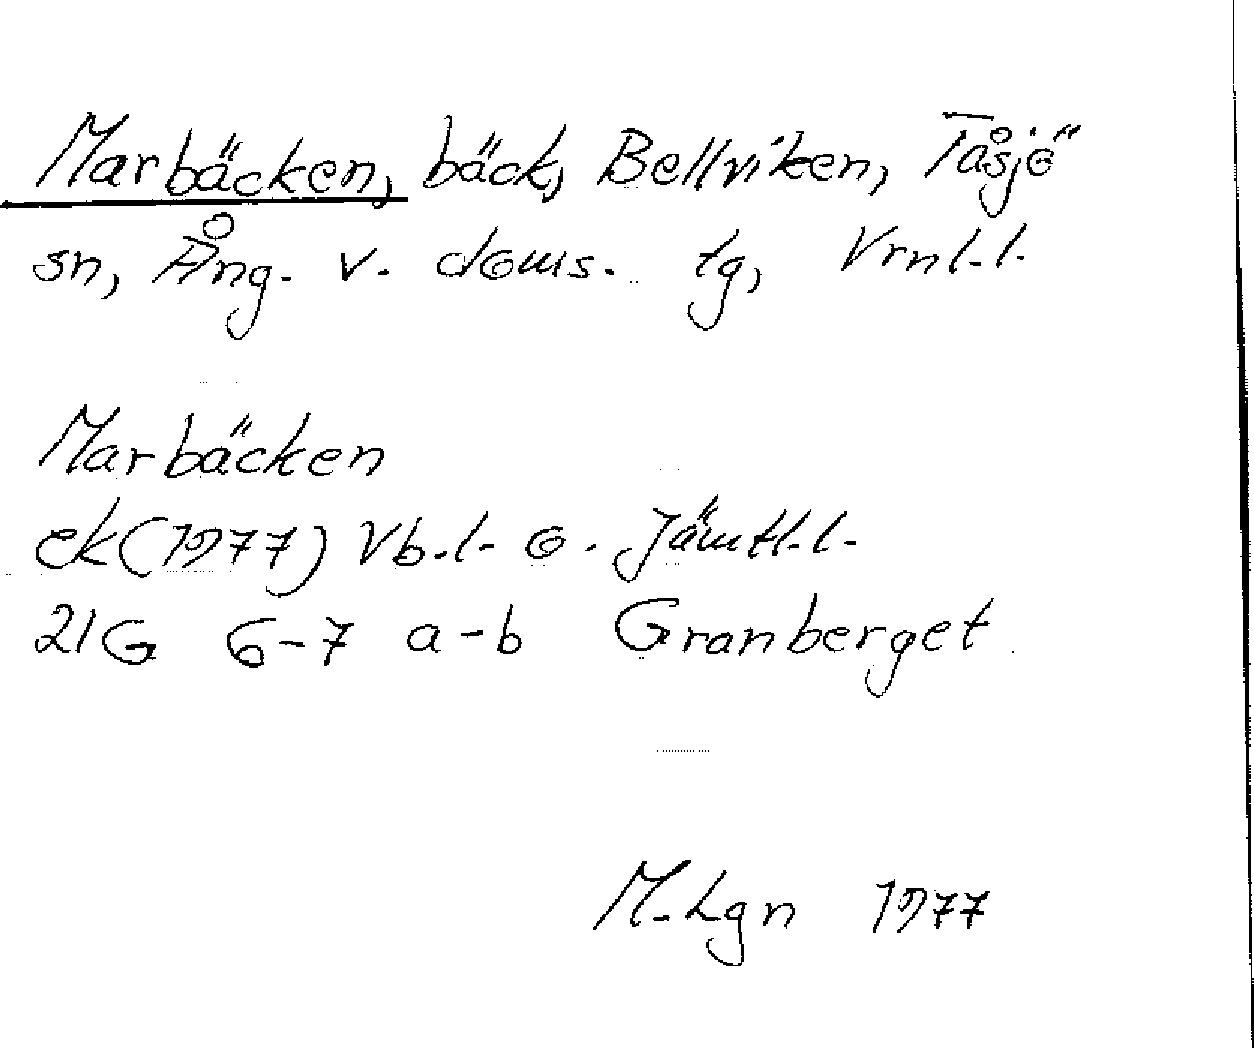 Marbäcken, bäck, Bellviken, Tåsjö
sn, Ång. v. doms. tg, Vrnl.l.
Marbäcken
ek (1977) Vb.l. o. Jämtl.l.
21G 6-7 a-b Granberget
M.Lgn 1977